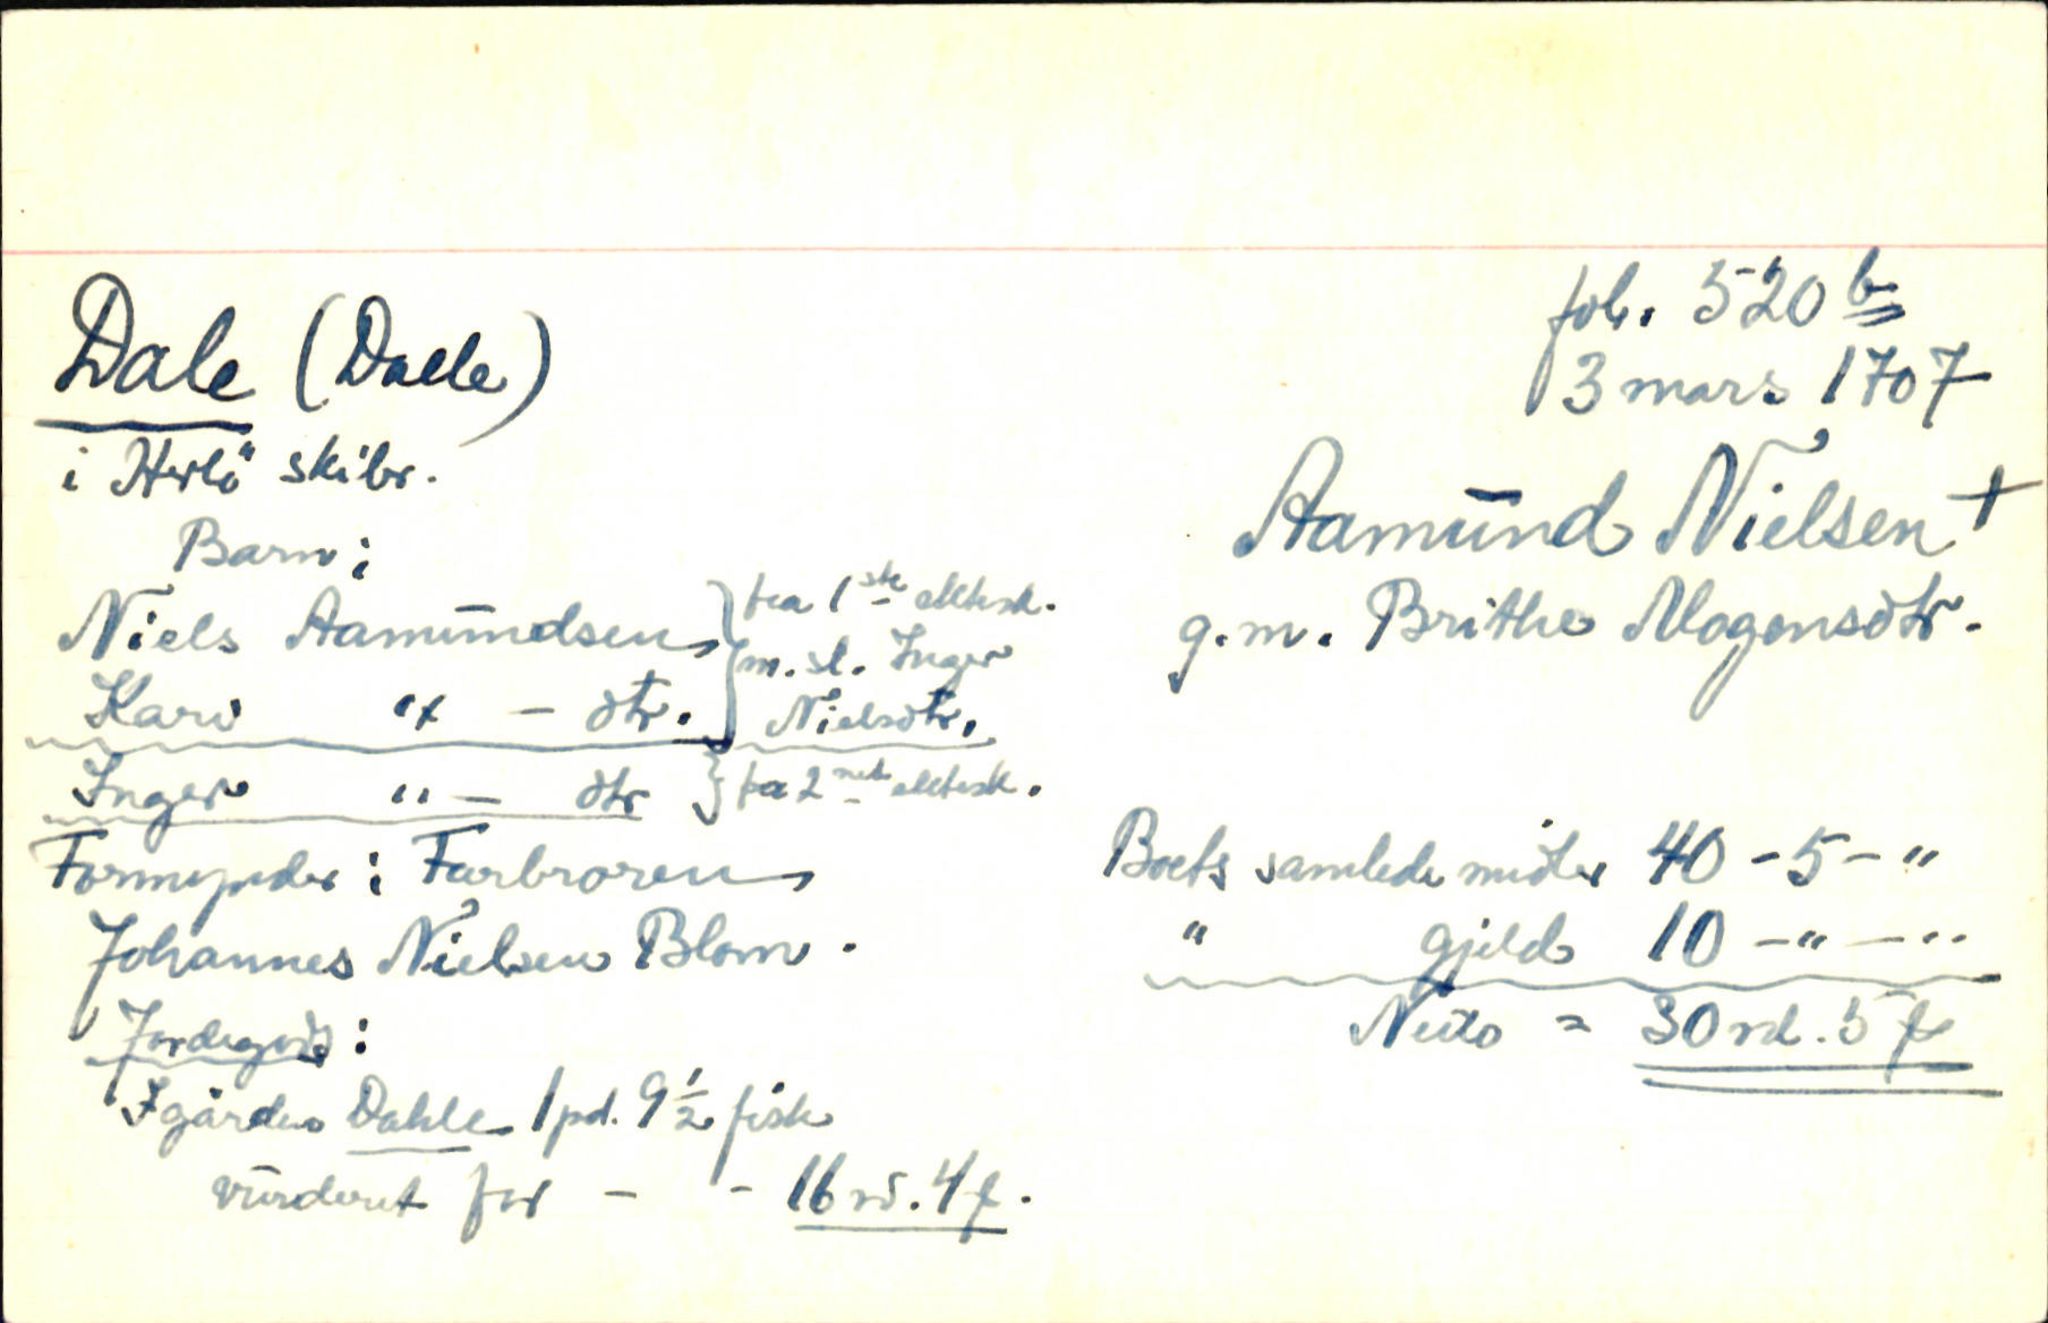 Dale (Dalle)
i Herlö skibr.
fol. 520 b
3 mars 1707
Aamund Nielsen +
g.m. Brithe Mogensdtr.
Barn:
Niels Aamundsen
Kari " - dtr.
fra 1ste ektesk.
m. sl. Inger
Nielsdtr.
Inger " - dtr
fra 2net ektesk.
Formynder: Farbroren
Johannes Nielsen Blom.
Jordegods:
I gården Dahle 1 pd. 9 1/2 fisk
vurderet for - - 16 rd. 4 f.
Boets samlede midler 40 - 5 - "
" gjeld 10 - " - "
Netto = 30 rd. 5 f